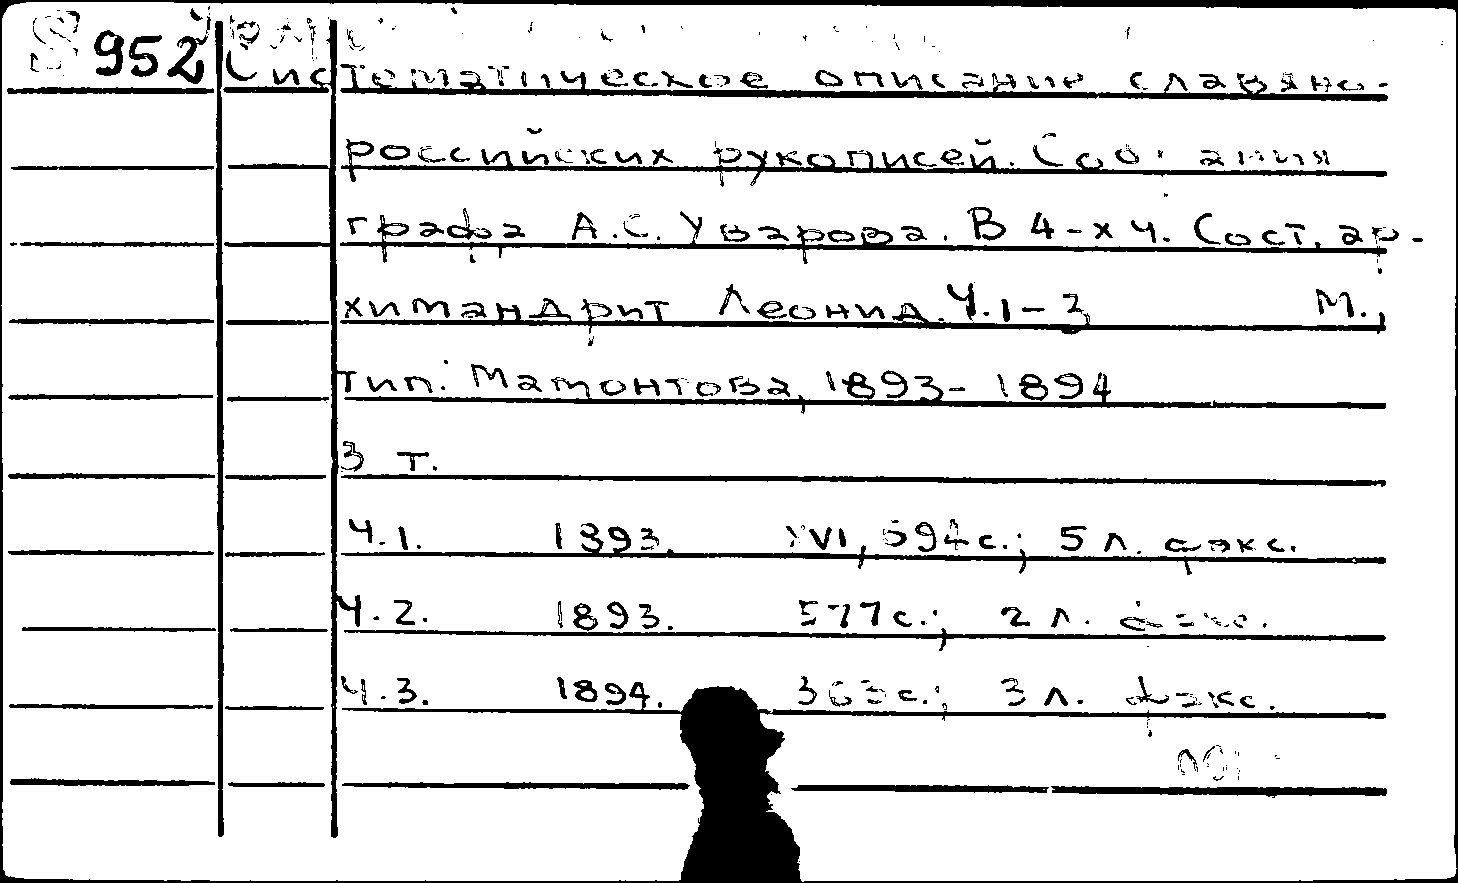 S 952
Систематическое описание славяно-
российских рукописей. Собрания
графа А.С. Уварова. В 4-х ч. Сост. ар-
химандрит Леонид. Ч.1-3 М.,
тип. Мамонтова, 1893-1894
3 т.
Ч.1. 1893. XVI, 594с.; 5 л. факс.
Ч.2. 1893. 577с.; 2 л. факс.
Ч.3. 1894. 363с.; 3 л. факс.